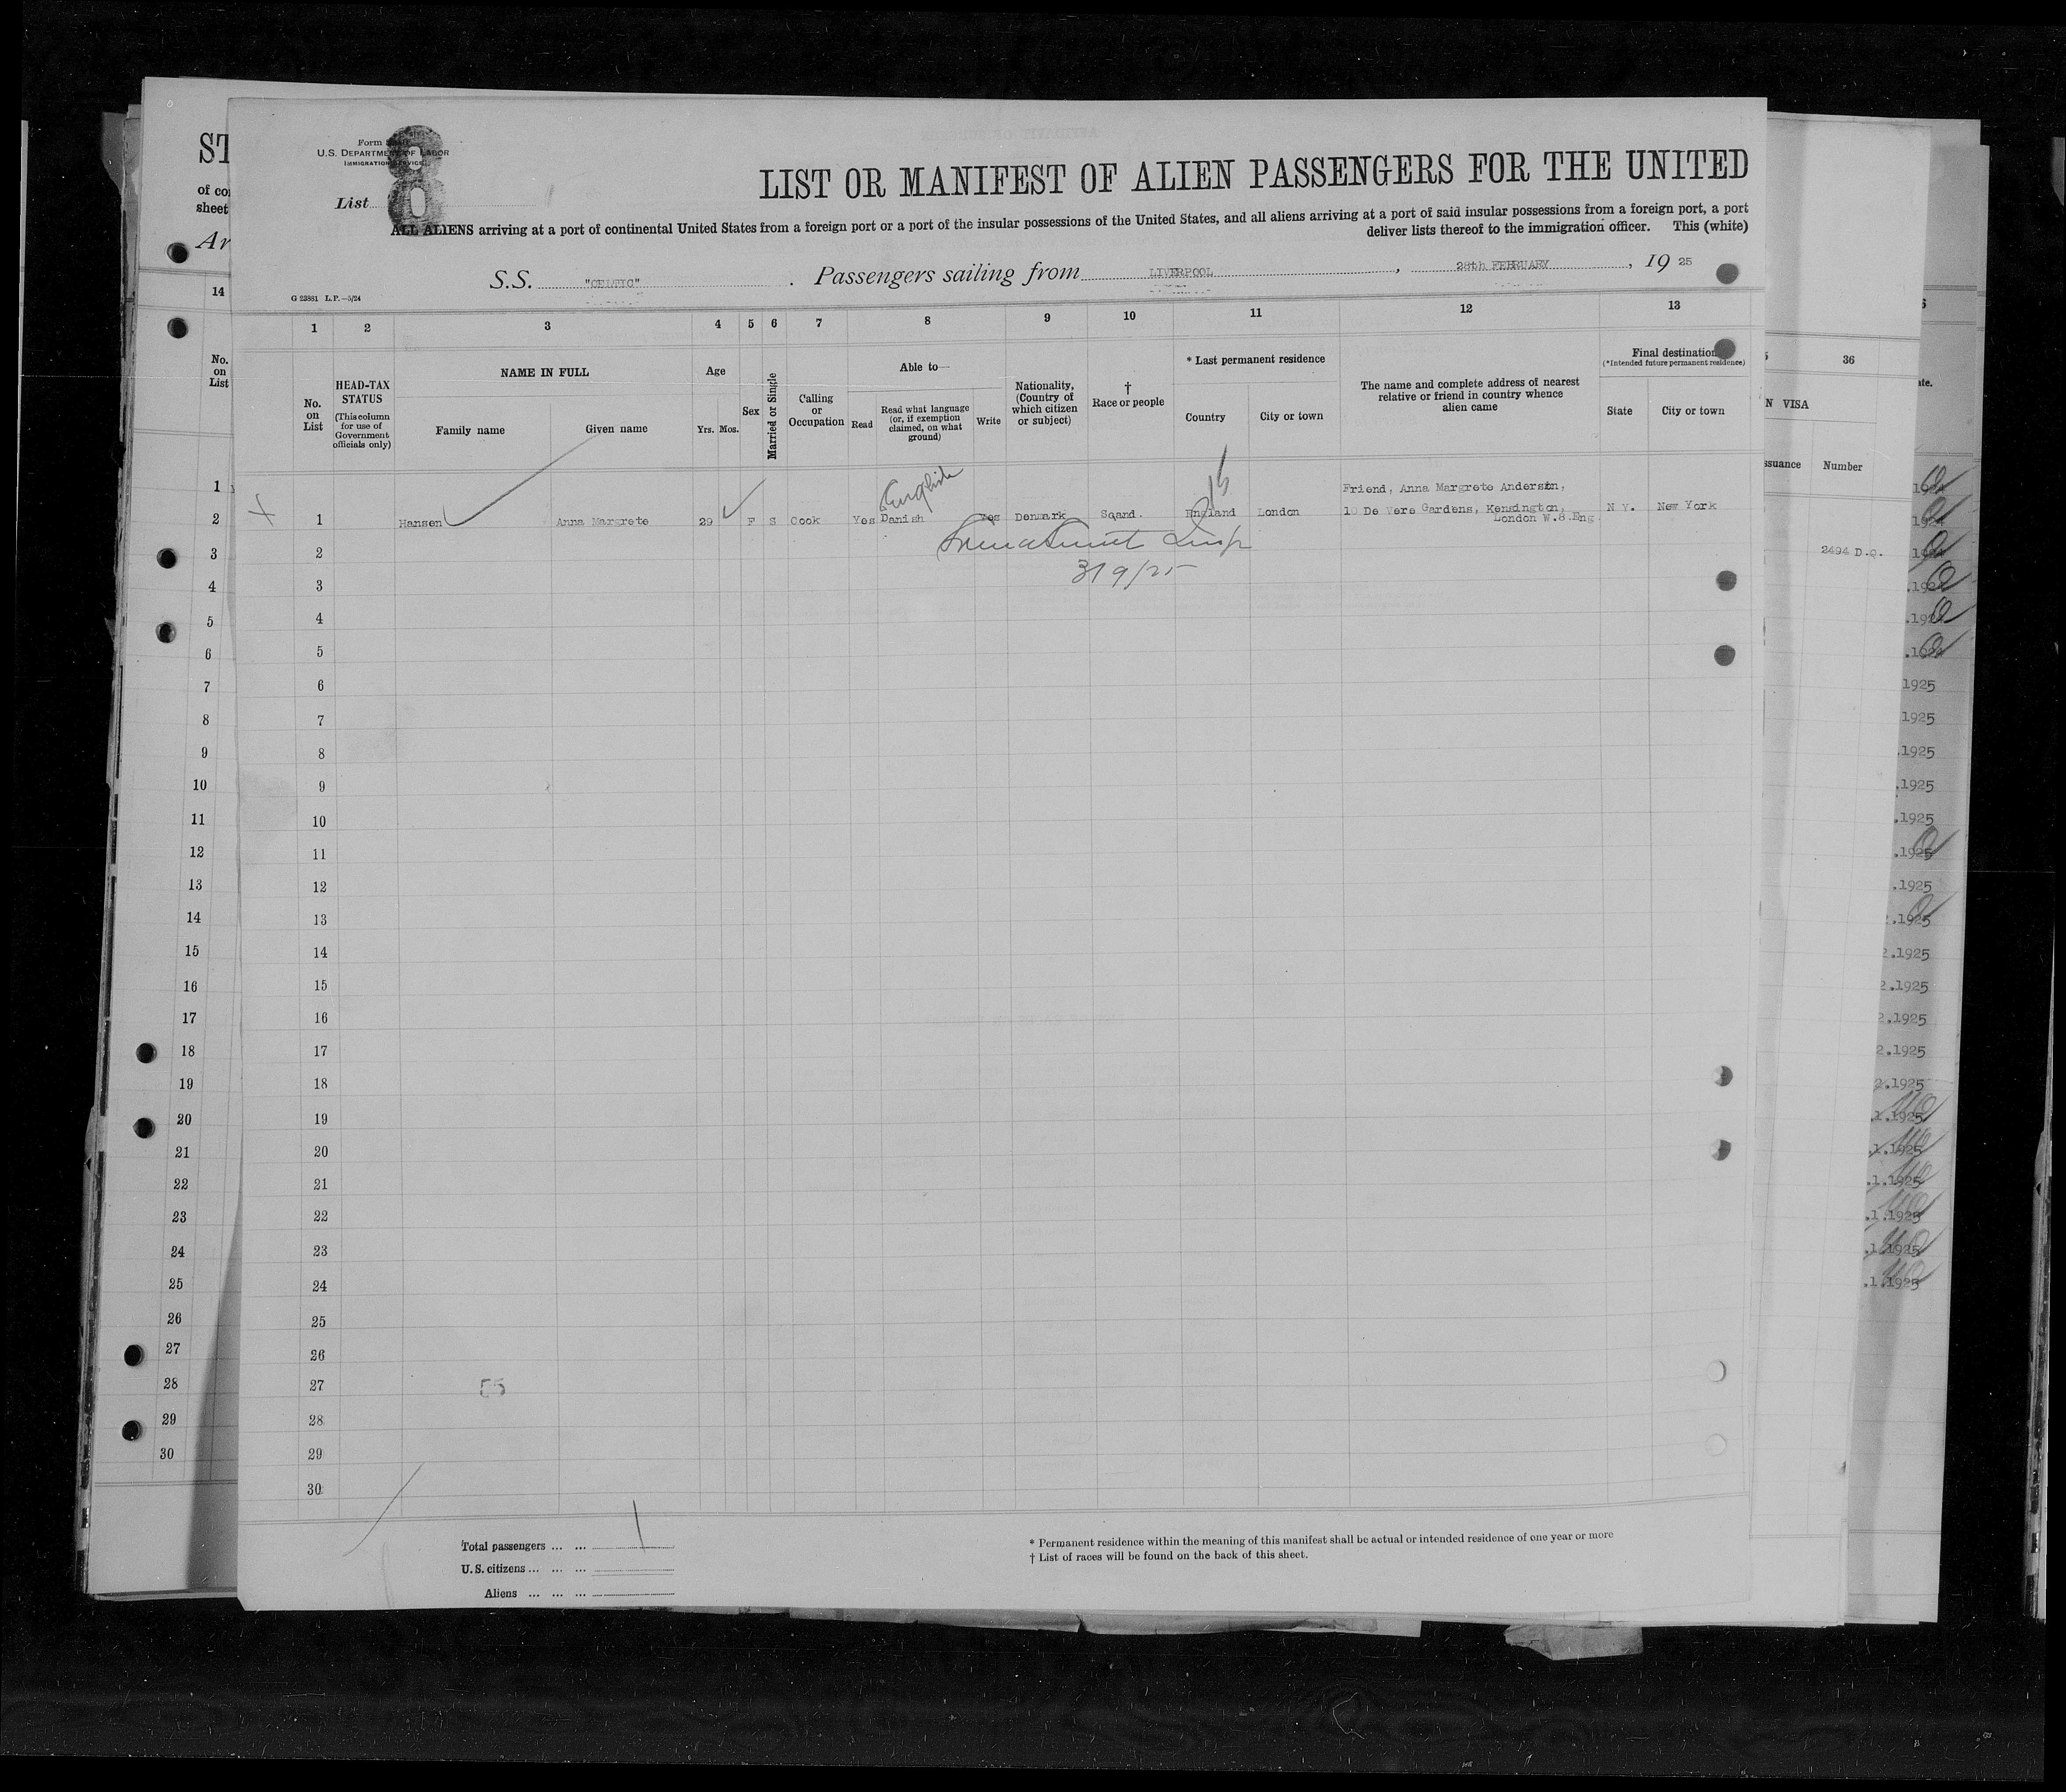 ST
of co
sheet
Ar
14
No.
on
List
Form
U.S. DEPARTMENT OF LABOR
IMMIGRATION SERVICE
8
List
LIST OR MANIFEST OF ALIEN PASSENGERS FOR THE UNITED
ALL ALIENS arriving at a port of continental United States from a foreign port or a port of the insular possessions of the United States, and all aliens arriving at a port of said insular possessions from a foreign port, a port
deliver lists thereof to the immigration officer. This (white)
S.S. "CELTIC" . Passengers sailing from LIVERPOOL , 28th FEBRUARY , 19 25
G 23881 L.P.—5/24
1 2 3 4 5 6 7 8 9 10 11 12 13
No.
on
List
HEAD-TAX
STATUS
(This column
for use of
Government
officials only)
NAME IN FULL
Family name Given name
Age
Yrs. Mos.
Sex
Married or Single
Calling
or
Occupation
Able to—
Read
Read what language
(or, if exemption
claimed, on what
ground)
Write
Nationality,
(Country of
which citizen
or subject)
†
Race or people
* Last permanent residence
Country City or town
The name and complete address of nearest
relative or friend in country whence
alien came
Final destination
(*Intended future permanent residence)
State City or town
English
Friend, Anna Margrete Andersen,
1 Hansen Anna Margrete 29 F S Cook Yes Danish Yes Denmark Scand. England London 10 De Vere Gardens, Kensington, N Y. New York
London W.8.Eng
3/9/25
2
3
4
5
6
7
8
9
10
11
12
13
14
15
16
17
18
19
20
21
22
23
24
25
26
27
28
29
30
55
Total passengers ... ... 1
U.S. citizens ... ... ...
Aliens ... ... ...
* Permanent residence within the meaning of this manifest shall be actual or intended residence of one year or more
† List of races will be found on the back of this sheet.
1
2
3
4
5
6
7
8
9
10
11
12
13
14
15
16
17
18
19
20
21
22
23
24
25
26
27
28
29
30
36
N VISA
ssuance Number
2494 D.Q.
ate.
1924
1924
1924
.1924
.1924
.1924
1925
1925
.1925
.1925
.1925
.1925
.1925
.1925
2.1925
2.1925
2.1925
2.1925
2.1925
.1.1925
.1.1925
.1.1925
.1.1925
.1.1925
.1.1925